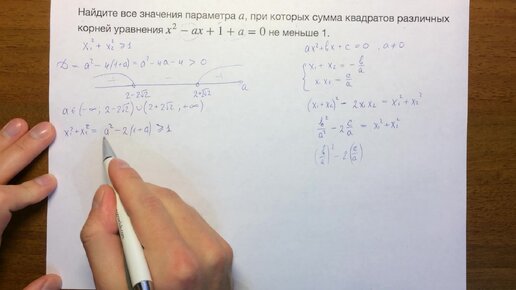 Найдите все значения параметра a, при которых сумма квадратов различных
корней уравнения x² − ax + 1 + a = 0 не меньше 1.
x₁² + x₂² ≥ 1
D = a² − 4(1+a) = a² − 4a − 4 > 0
+ − +
2−2√2 2+2√2 a
a ∈ (−∞; 2−2√2) ∪ (2+2√2, +∞)
x₁² + x₂² = a² − 2(1+a) ≥ 1
ax² + bx + c = 0, a ≠ 0
x₁ + x₂ = − b/a
x₁ x₂ = c/a
(x₁ + x₂)² − 2x₁x₂ = x₁² + x₂²
b²/a² − 2 c/a = x₁² + x₂²
(b/a)² − 2(c/a)